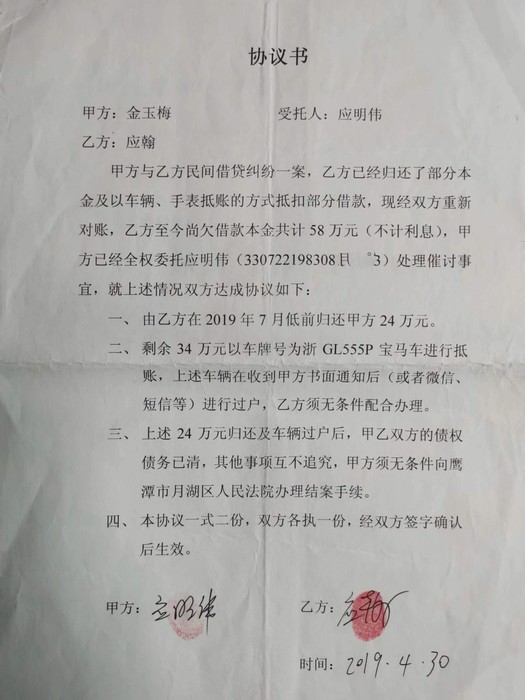 协议书
甲方：金玉梅 受托人：应明伟
乙方：应翰
甲方与乙方民间借贷纠纷一案，乙方已经归还了部分本
金及以车辆、手表抵账的方式抵扣部分借款，现经双方重新
对账，乙方至今尚欠借款本金共计 58 万元（不计利息），甲
方已经全权委托应明伟（330722198308 3）处理催讨事
宜，就上述情况双方达成协议如下：
一、 由乙方在 2019 年 7 月低前归还甲方 24 万元。
二、 剩余 34 万元以车牌号为浙 GL555P 宝马车进行抵
账，上述车辆在收到甲方书面通知后（或者微信、
短信等）进行过户，乙方须无条件配合办理。
三、 上述 24 万元归还及车辆过户后，甲乙双方的债权
债务已清，其他事项互不追究，甲方须无条件向鹰
潭市月湖区人民法院办理结案手续。
四、 本协议一式二份，双方各执一份，经双方签字确认
后生效。
甲方：应明伟 乙方：应翰
时间：2019.4.30